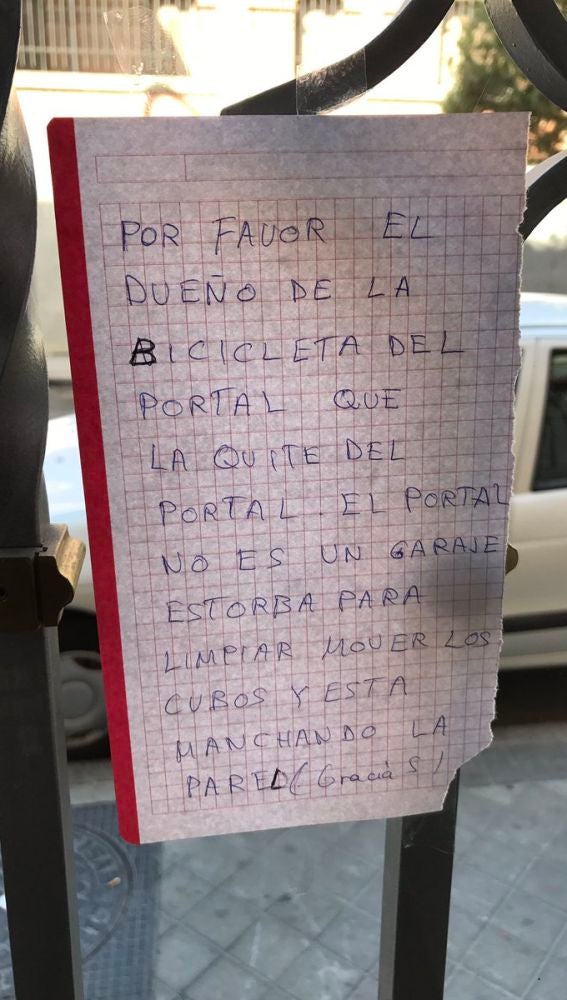 POR FAVOR EL
DUEÑO DE LA
BICICLETA DEL
PORTAL QUE
LA QUITE DEL
PORTAL. EL PORTAL
NO ES UN GARAJE
ESTORBA PARA
LIMPIAR MOVER LOS
CUBOS Y ESTA
MANCHANDO LA
PARED (Gracias)